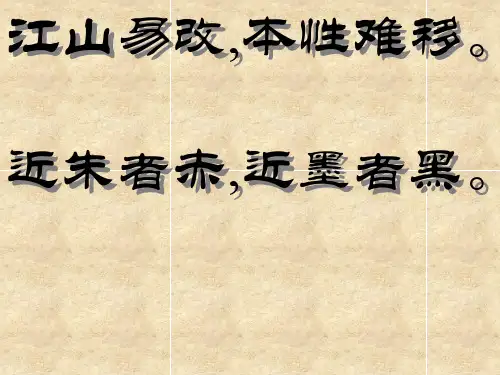 江山易改,本性难移。
近朱者赤,近墨者黑。